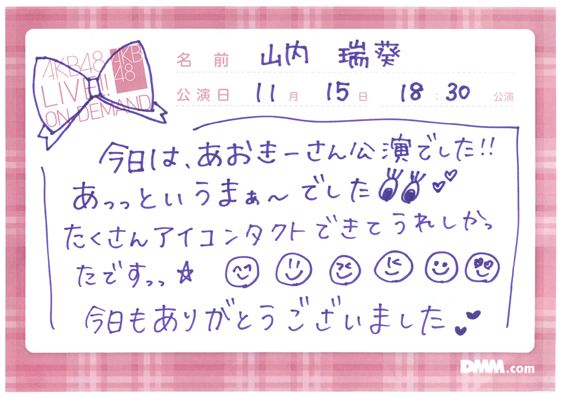 AKB48
LIVE!!
ON DEMAND
AKB
48
名前 山内 瑞葵
公演日 11月 15日 18:30 公演
今日は、あおきーさん公演でした!!
あっっというまぁ〜でした
たくさんアイコンタクトできてうれしかっ
たですっっ☆
今日もありがとうございました
DMM.com